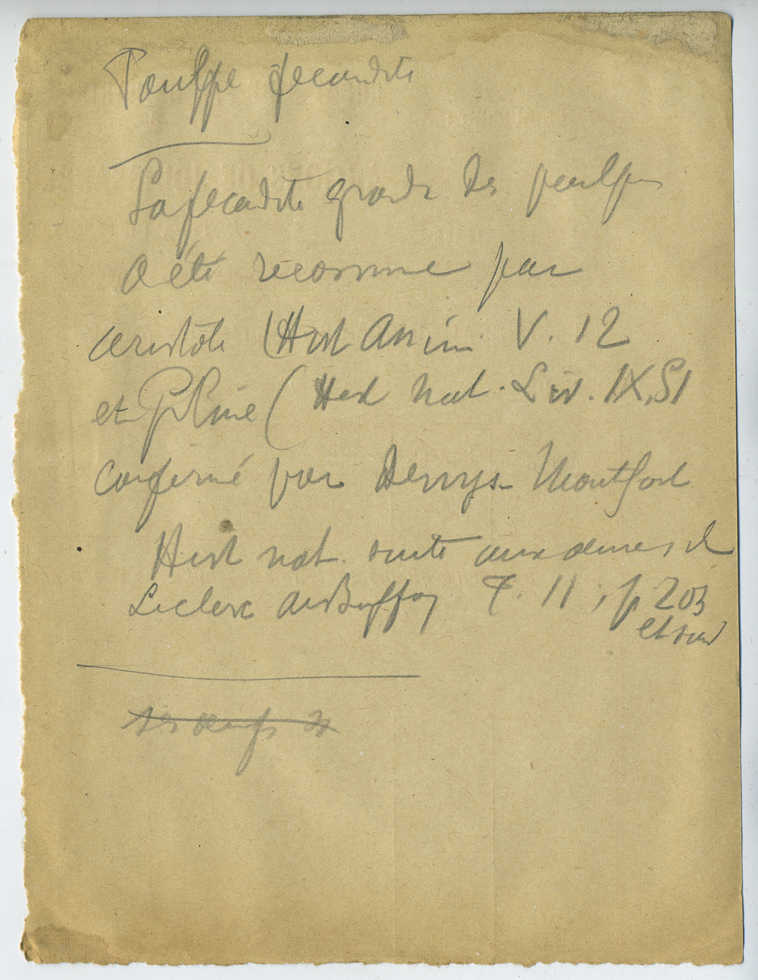 Poulpe fecondite
La fecondite grande des poulpes
a été reconnue par
aristote (Hist Anim. V. 12
et Pline (Hist Nat. Liv. IX, 51
confirmé par Denys Montfort
Hist nat. suite aux œuvres de
Leclerc de Buffon T. 11, p 203
et suiv
les œufs